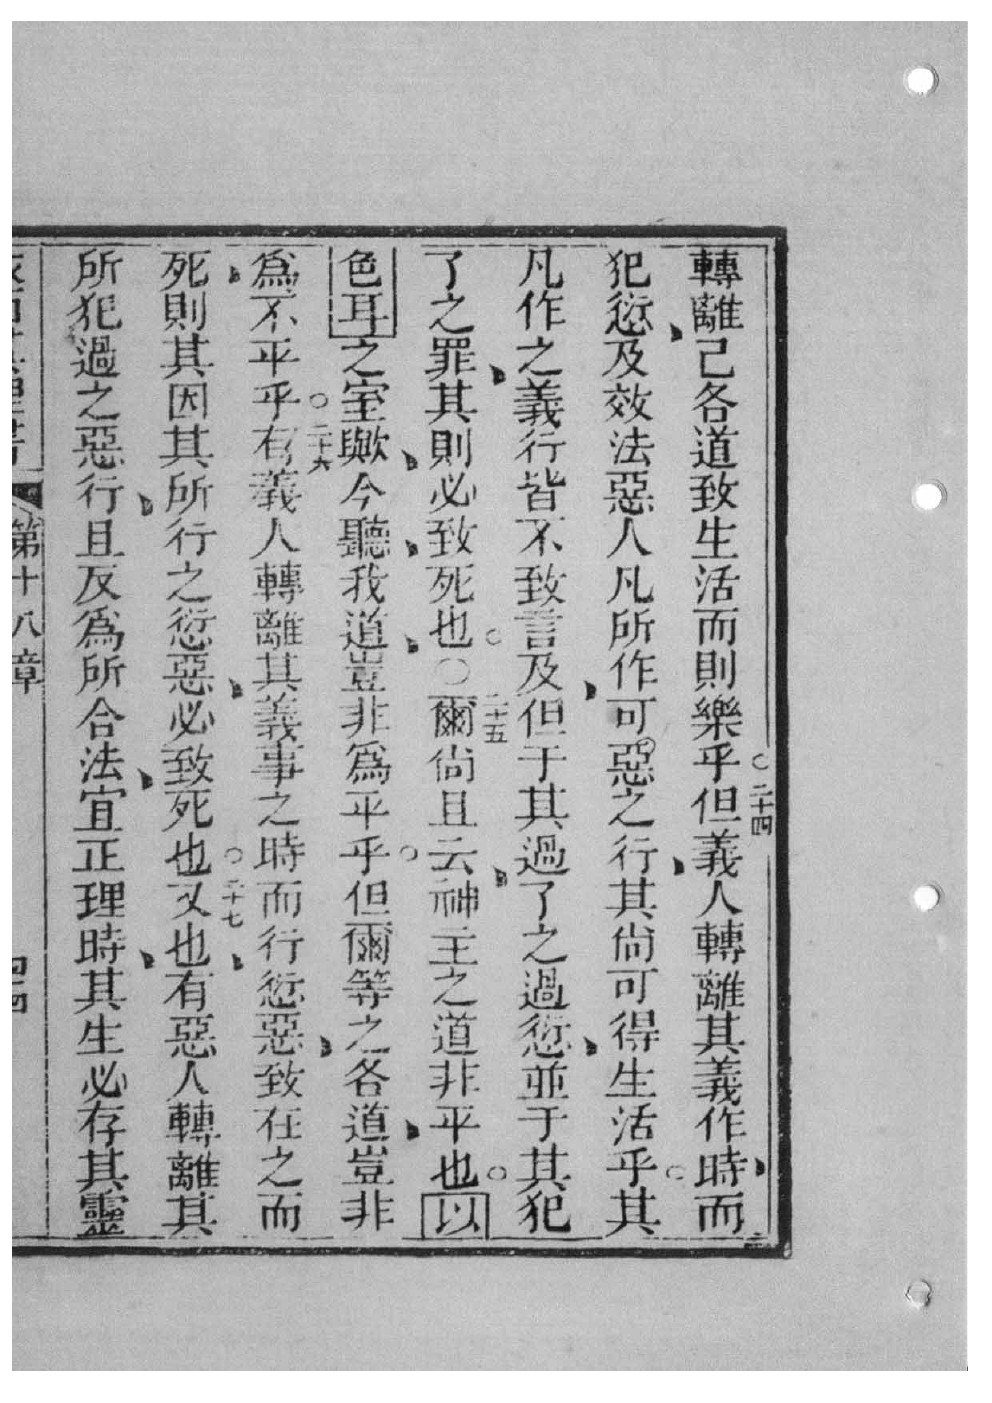 轉離己各道致生活而則樂乎○二十四但義人轉離其義作時而
犯愆及效法惡人凡所作可惡之行其尙可得生活乎○其
凡作之義行皆不致言及但于其過了之過愆並于其犯
了之罪其則必致死也○二十五爾尙且云神主之道非平也○以
色耳之室歟今聽我道豈非爲平乎○但爾等之各道豈非
爲不平乎○二十六有義人轉離其義事之時而行愆惡致在之而
死則其因其所行之愆惡必致死也○二十七又也有惡人轉離其
所犯過之惡行且反爲所合法宜正理時其生必存其靈
第十八章